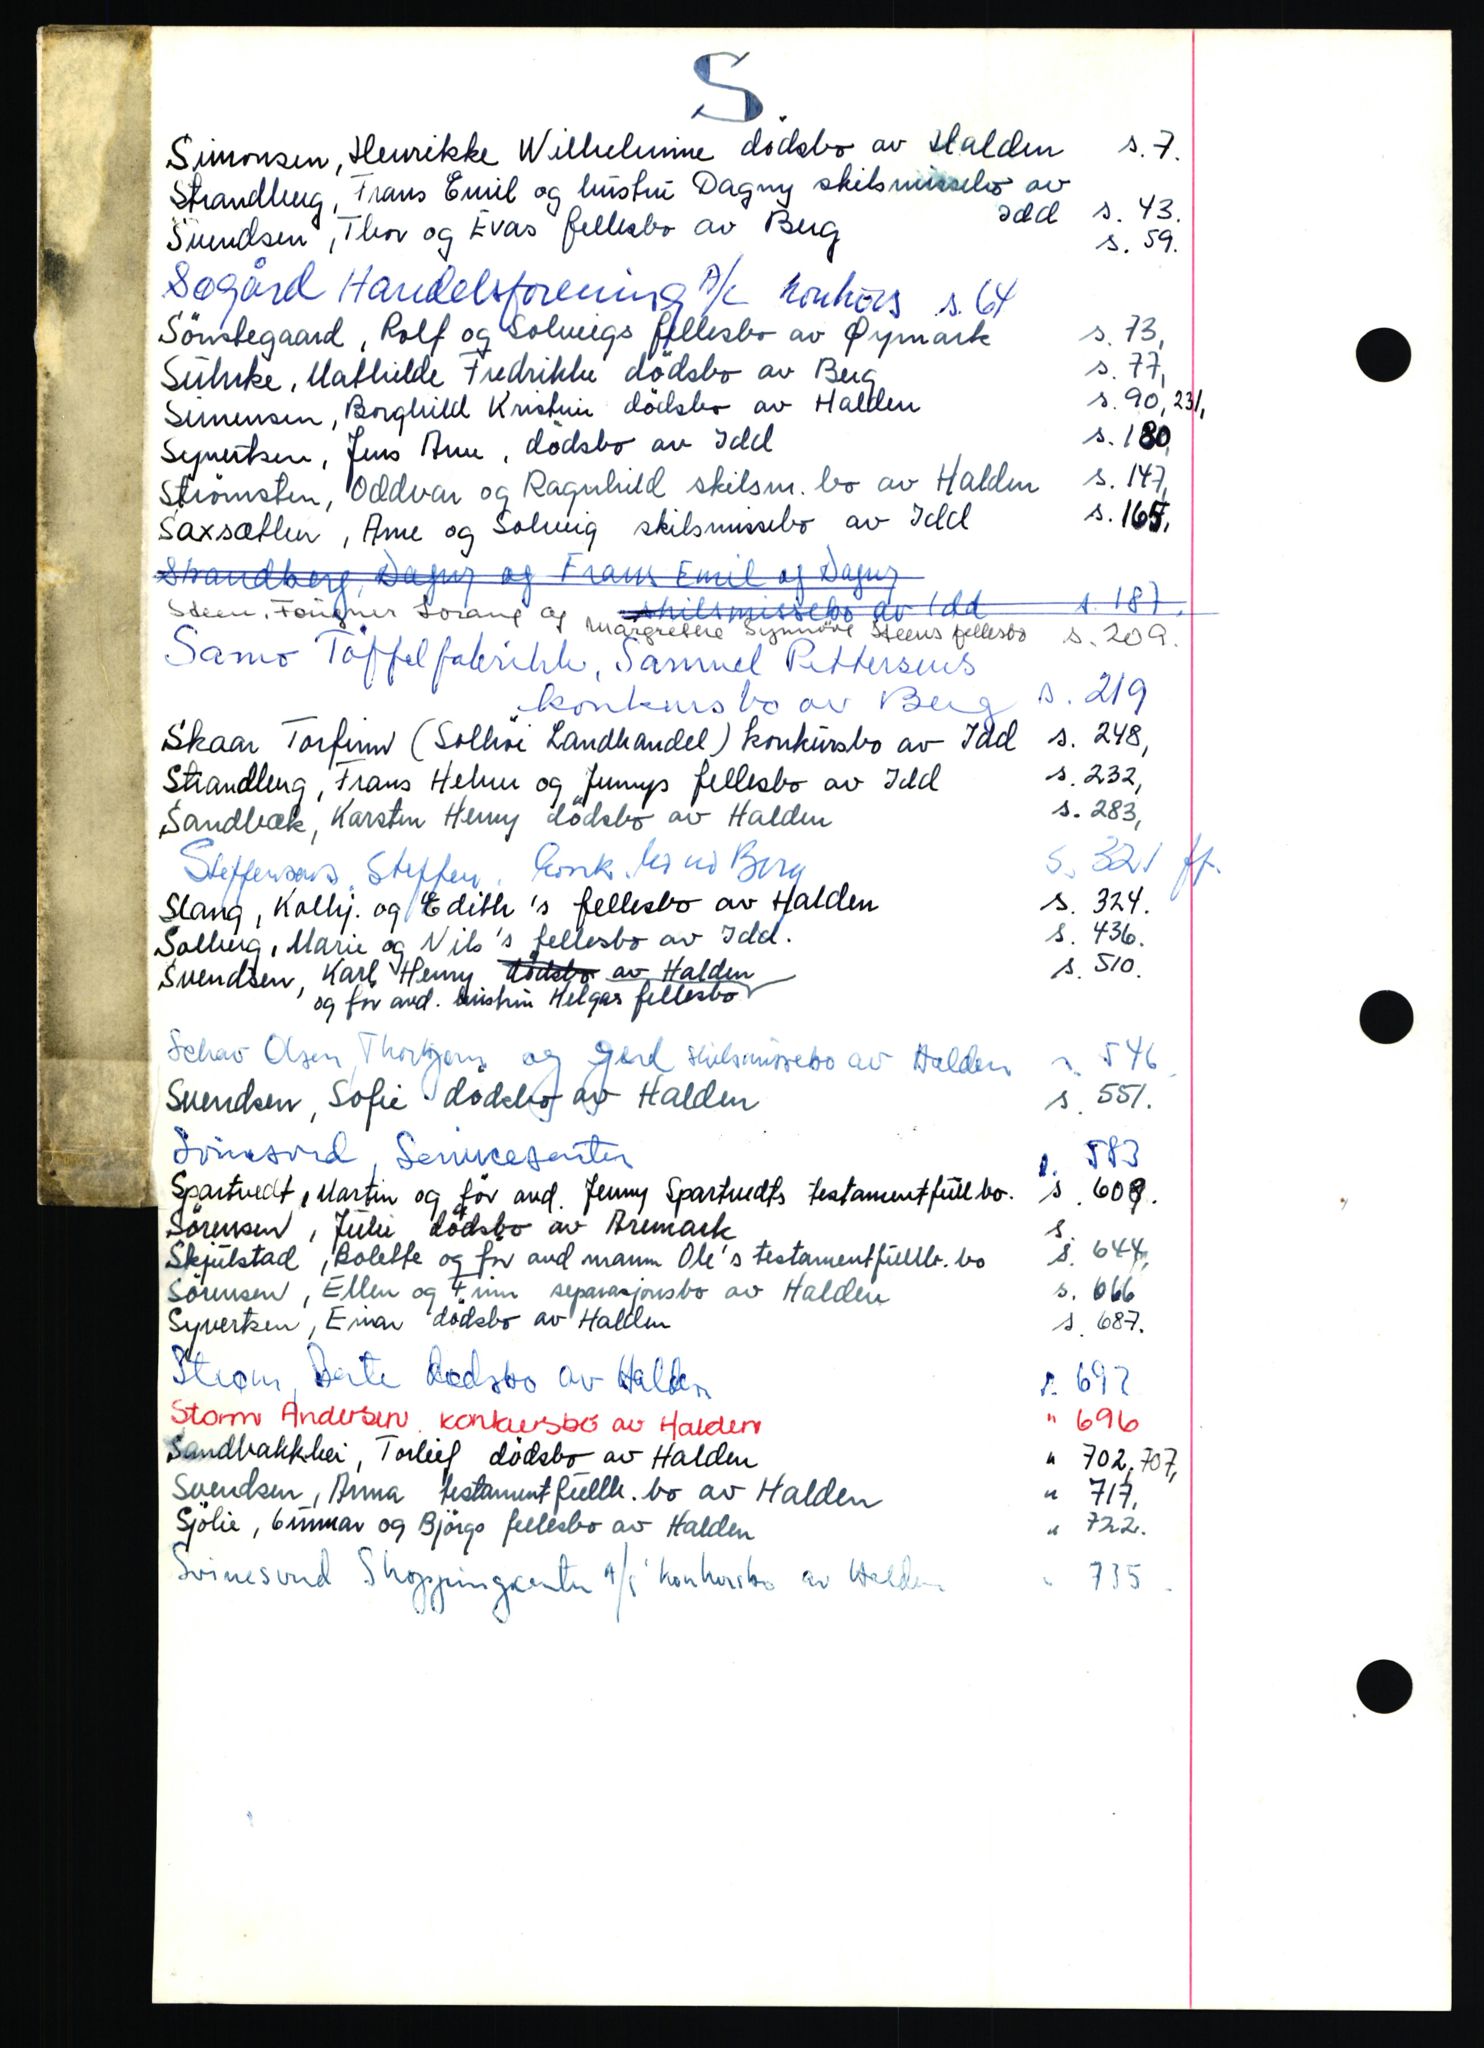 S
Simonsen, Henrikke Wilhelmine dödsbo av Halden s. 7.
Strandberg, Frans Emil og hustru Dagny skilsmissebo av
Idd s. 43.
Svendsen, Thor og Evas fellesbo av Berg s. 59.
Søgård Handelsforening A/L konkurs s. 64
Sönstegaard, Rolf og Solveigs fellesbo av Øymark s. 73,
Suhrke, Mathilde Fredrikke dödsbo av Berg s. 77,
Simensen, Borghild Kristine dödsbo av Halden s. 90, 231,
Syvertsen, Jens Arne, dödsbo av Idd s. 180,
Strömsten, Oddvar og Ragnhild skilsm. bo av Halden s. 147,
Saxsæther, Arne og Solveig skilsmissebo av Idd s. 165,
Strandberg, Dagny og Frans Emil og Dagny
skilsmissebo av Idd s. 187.
Steen, Fougner Sorang og Margrethe Synnöve Steens fellesbo s. 209.
Samo Töffelfabrikk, Samuel Pettersens
konkursbo av Berg s. 219
Skaar Torfinn (Solhöi Landhandel) konkursbo av Idd s. 248,
Strandberg, Frans Helmer og Jennys fellesbo av Idd s. 232,
Sandbæk, Karsten Henry dödsbo av Halden s. 283,
Steffensens, Steffen, konk. bo av Berg s. 321 ff.
Slang, Kolbj. og Edith's fellesbo av Halden s. 324.
Solberg, Marie og Nils's fellesbo av Idd. s. 436.
Svendsen, Karl Henry dödsbo av Halden s. 510.
og for avd. hustru Helgas fellesbo
Schav Olsen, Thorbjørn og Gerd skilsmissebo av Halden s. 546.
Svendsen, Sofie dödsbo av Halden s. 551.
Svinesund Servicesenter s. 583
Spartvedt, Martin og för avd. Jenny Spartvedts testamentfull bo. s. 609.
Sörensen, Julie dödsbo av Aremark s.
Skjulstad, Bolette og för avd mann Ole's testamentfullb. bo s. 644,
Sörensen, Ellen og Finn separasjonsbo av Halden s. 666
Syvertsen, Einar dödsbo av Halden s. 687.
Strøm, Berte dødsbo av Halden s. 692
Storm Andersen, konkursbo av Halden " 696
Sandbakken, Torleif dödsbo av Halden " 702, 707,
Svendsen, Anna testamentfullb. bo av Halden " 717,
Sjölie, Gunnar og Björgs fellesbo av Halden " 722.
Svinesund Shoppingcenter A/S konkursbo av Halden " 735.